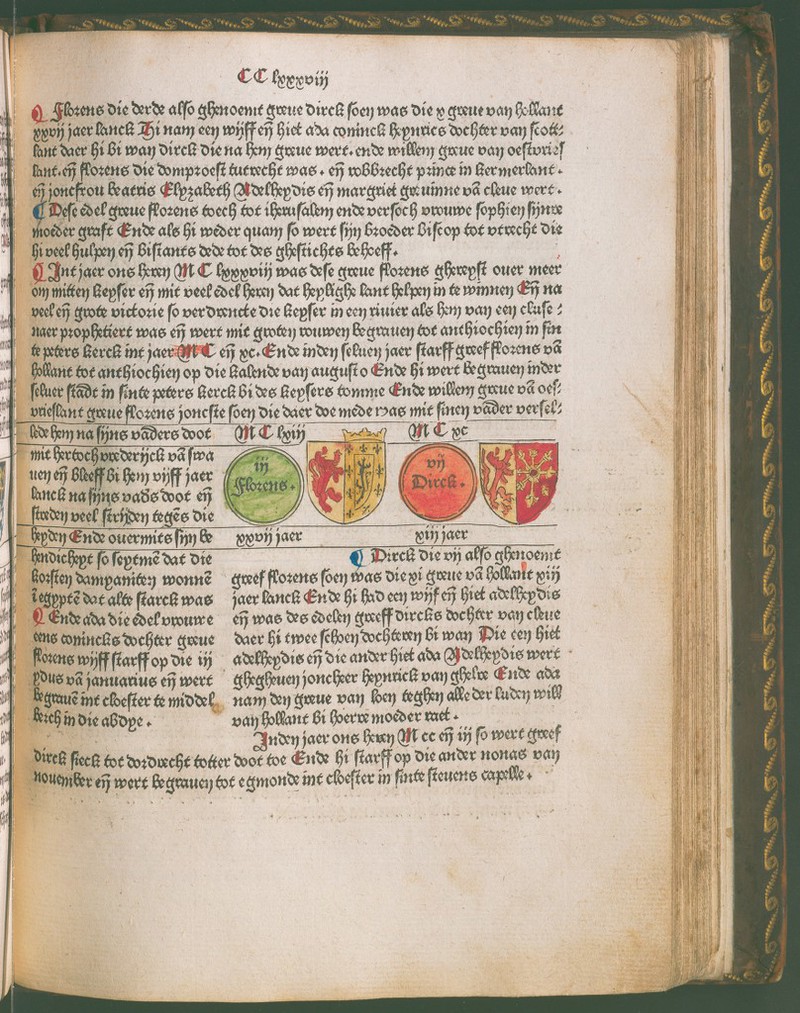 CC lxxxviij
Florens die derde also ghenoemt greue dirck soen was die x greue van hollant
xxvij jaer lanck Hi nam een wijff en̄ hiet ada coninck heynrics dochter van scott/
lant daer hi bi wan dirck die na hem greue wert. ende willem greue van oestvries
lant. en̄ florens die domproest tutrecht was. en̄ robbrecht prince in kermerlant.
en̄ joncfrou beatris Elyzabeth Adelheydis en̄ margriet grauinne vā cleue wert.
Dese edel greue florens toech tot iherusalem ende versoch vrouwe sophien sijnre
moeder graft Ende als hi weder quam so wert sijn broeder biscop tot vtrecht die
hi veel hulpen en̄ bistants dede tot des ghestichts behoeff.
Int jaer ons heren M C lxxxviij was dese greue florens ghereyst ouer meer
om mitten keyser en̄ mit veel edel heren dat heylighe lant helpen in te winnen En̄ na
veel en̄ grote victorie so verdrencte die keyser in een riuier als hem van een cluse/
naer prophetiert was en̄ wert mit groten rouwen begrauen tot anthiochien in sin
te peters kerck int jaer M C en̄ xc. Ende inden seluen jaer starff greef florens vā
hollant tot anthiochien op die kalende van augusto Ende hi wert begrauen inder
seluer stadt in sinte peters kerck bi des keysers tomme Ende willem greue vā oes/
vrieslant greue florens joncste soen die daer doe mede was mit sinen vader versel/
lede hem na sijns vaders doot
mit hertoch vrederijck vā swa
uen en̄ bleeff bi hem vijff jaer
lanck na sijns vad's doot en̄
streden veel strijden tegēs die
heyden Ende ouermits sijn be
hendicheyt so septmē dat die
korsten dampaniten wonnē
ī egyptē dat alte starck was
Ende ada die edel vrouwe
eens conincks dochter greue
florens wijff starff op die iij
ydus vā januarius en̄ wert
begrauē int cloester te middel
berch in die abdye.
M C lxiij
M C xc
iij
Florens.
vij
Dirck.
xxvij jaer
xiij jaer
Dirck die vij also ghenoemt
greef florens soen was die xi greue vā hollant xiij
jaer lanck Ende hi had een wijf en̄ hiet adelheydis
en̄ was des edelen greeff dircks dochter van cleue
daer hi twee schoen dochteren bi wan Die een hiet
adelheydis en̄ die ander hiet ada Adelheydis wert
ghegheuen joncheer heynrick van ghelre Ende ada
nam den greue van loen teghen alle der luden will
van hollant bi hoerre moeder raet.
Inden jaer ons heren M cc en̄ iij so wert greef
dirck sieck tot dordrecht totter doot toe Ende hi starff op die ander nonas van
nouember en̄ wert begrauen tot egmonde int cloester in sinte steuens capelle.